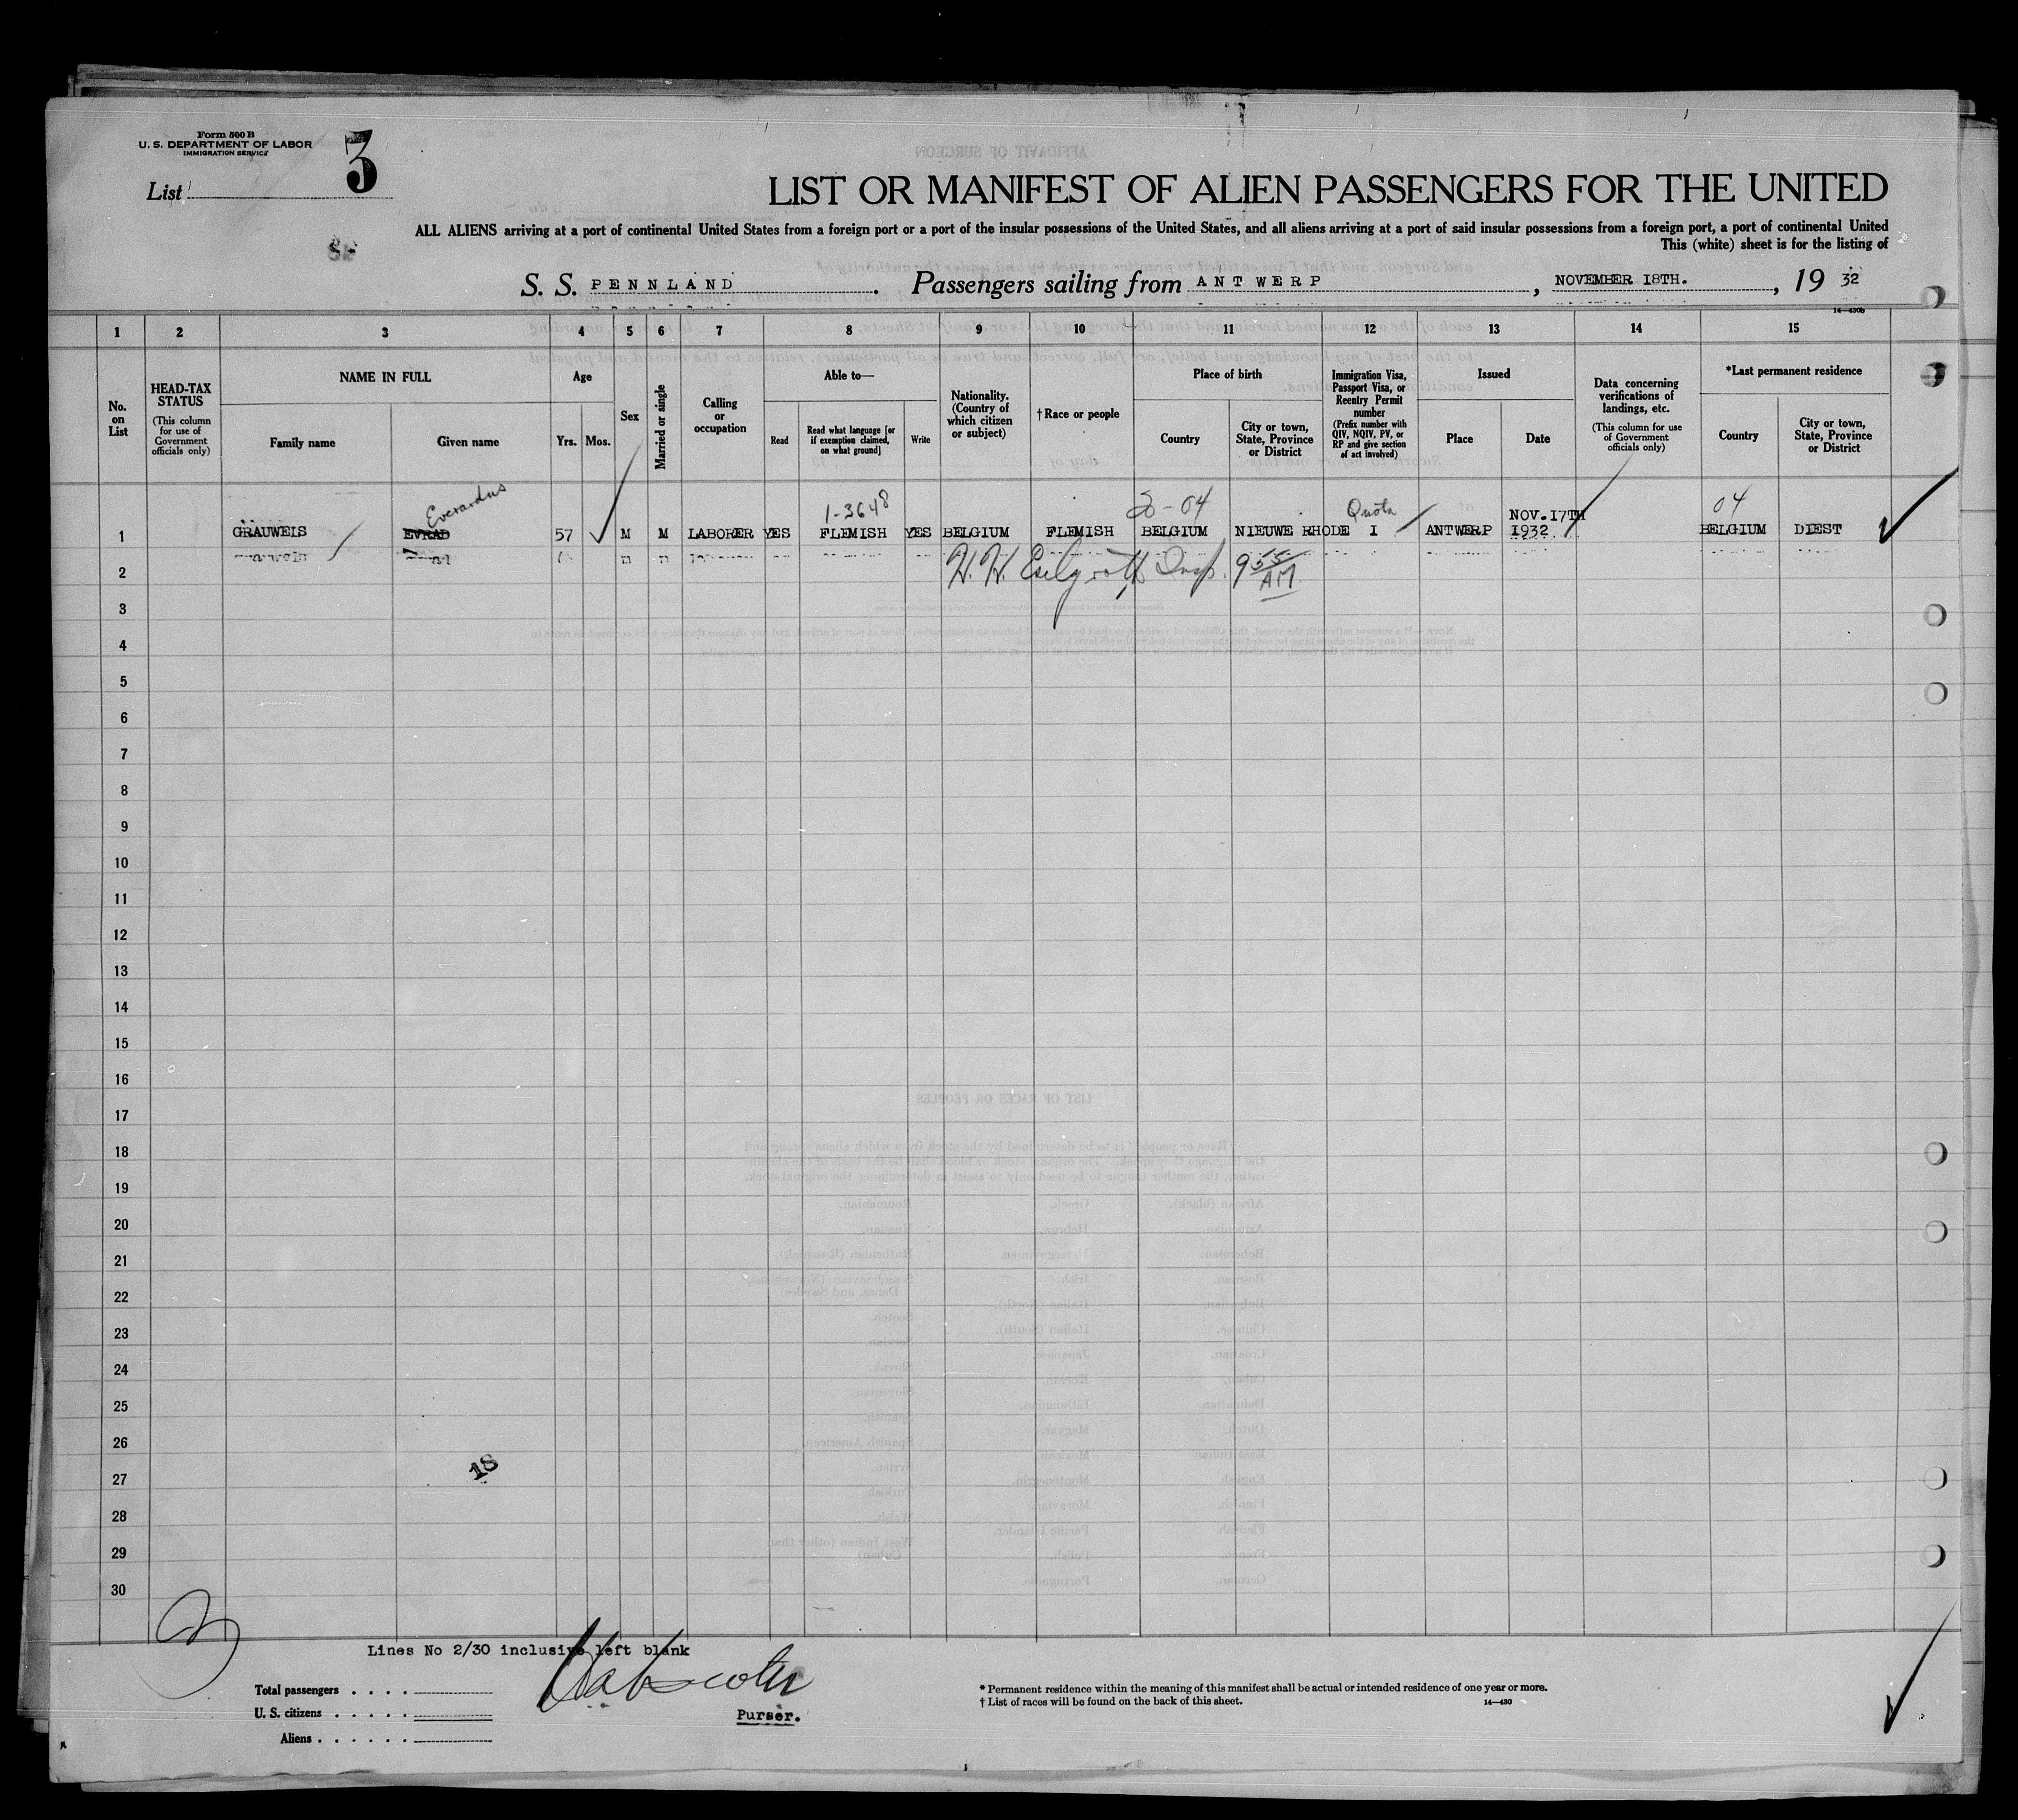 Form 500 B
U. S. DEPARTMENT OF LABOR
IMMIGRATION SERVICE
List 3
LIST OR MANIFEST OF ALIEN PASSENGERS FOR THE UNITED
ALL ALIENS arriving at a port of continental United States from a foreign port or a port of the insular possessions of the United States, and all aliens arriving at a port of said insular possessions from a foreign port, a port of continental United
This (white) sheet is for the listing of
S. S. PENNLAND. Passengers sailing from ANTWERP, NOVEMBER 18TH., 19 32
14—430b
1 2 3 4 5 6 7 8 9 10 11 12 13 14 15
No. on List
HEAD-TAX STATUS (This column for use of Government officials only)
NAME IN FULL
Family name
Given name
Age
Yrs.
Mos.
Sex
Married or single
Calling or occupation
Able to—
Read
Read what language [or if exemption claimed, on what ground]
Write
Nationality. (Country of which citizen or subject)
†Race or people
Place of birth
Country
City or town, State, Province or District
Immigration Visa, Passport Visa, or Reentry Permit number (Prefix number with QIV, NQIV, PV, or RP and give section of act involved)
Issued
Place
Date
Data concerning verifications of landings, etc. (This column for use of Government officials only)
*Last permanent residence
Country
City or town, State, Province or District
Everardus 1-3648 Quota 04
1 GRAUWELS EVRAD 57 M M LABORER YES FLEMISH YES BELGIUM FLEMISH BELGIUM NIEUWE RHODE I ANTWERP NOV.17TH 1932 BELGIUM DIEST
2 H. H. Insp. 9 55 AM
3
4
5
6
7
8
9
10
11
12
13
14
15
16
17
18
19
20
21
22
23
24
25
26
18
27
28
29
30
Lines No 2/30 inclusive left blank
Total passengers . . . .
U. S. citizens . . . . .
Aliens . . . . . .
Purser.
* Permanent residence within the meaning of this manifest shall be actual or intended residence of one year or more.
† List of races will be found on the back of this sheet.
14—430